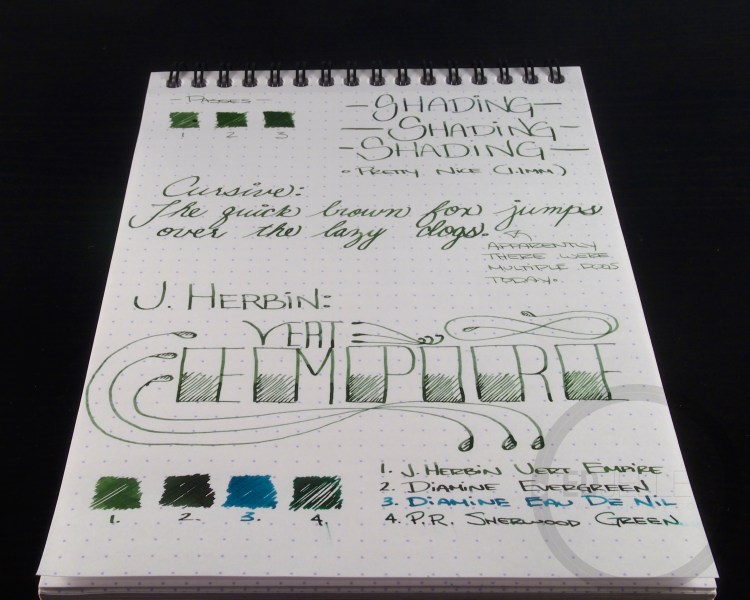 - Passes -
1 2 3
- SHADING -
- SHADING -
- SHADING -
• PRETTY NICE (1.1MM)
Cursive:
The quick brown fox jumps
over the lazy dogs.
APPARENTLY
THERE WERE
MULTIPLE DOGS
TODAY.
J. HERBIN:
VERT
EMPIRE
1. 2. 3. 4.
1. J. HERBIN VERT EMPIRE
2. DIAMINE EVERGREEN
3. DIAMINE EAU DE NIL
4. P.R. SHERWOOD GREEN